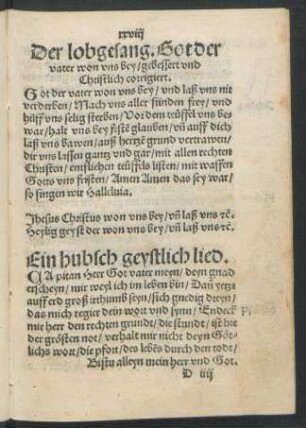 rrviij
Der lobgesang. Got der
vater won vns bey / gebessert vnd
Christlich corrigiert.
Got der vater won vns bey / vnd laß vns nit
verderben / Mach vns aller sünden frey / vnd
hilff vns selig sterben / Vor dem teüffel vns be-
war / halt vns bey festē glauben / vñ auff dich
laß vns bawen / auß hertzē grund vertrawen /
dir vns lassen gantz vnd gar / mit allen rechten
Christen / entfliehen teüffels listen / mit waffen
Gotts vns fristen / Amen Amen das sey war /
so singen wir Halleluia.
Jhesus Christus won vns bey / vñ laß vns ꝛc.
Heylig geyst der won vns bey / vñ laß vns ꝛc.
Ein hubsch geystlich lied.
CApitan Herr Got vater meyn / deyn gnad
erscheyn / mir weyl ich im leben bin / Dañ yetzt
auff erd groß irthumb seyn / sich gnedig dreyn /
das mich regier dein wort vnd synn / Endeck
mir herr den rechten grundt / die stundt / ist hie
der grösten not / verhalt mir nicht deyn Göt-
lichs wort / die pfort / des lebēs durch den todt /
Bistu alleyn mein herr vnd Got.
D iiij